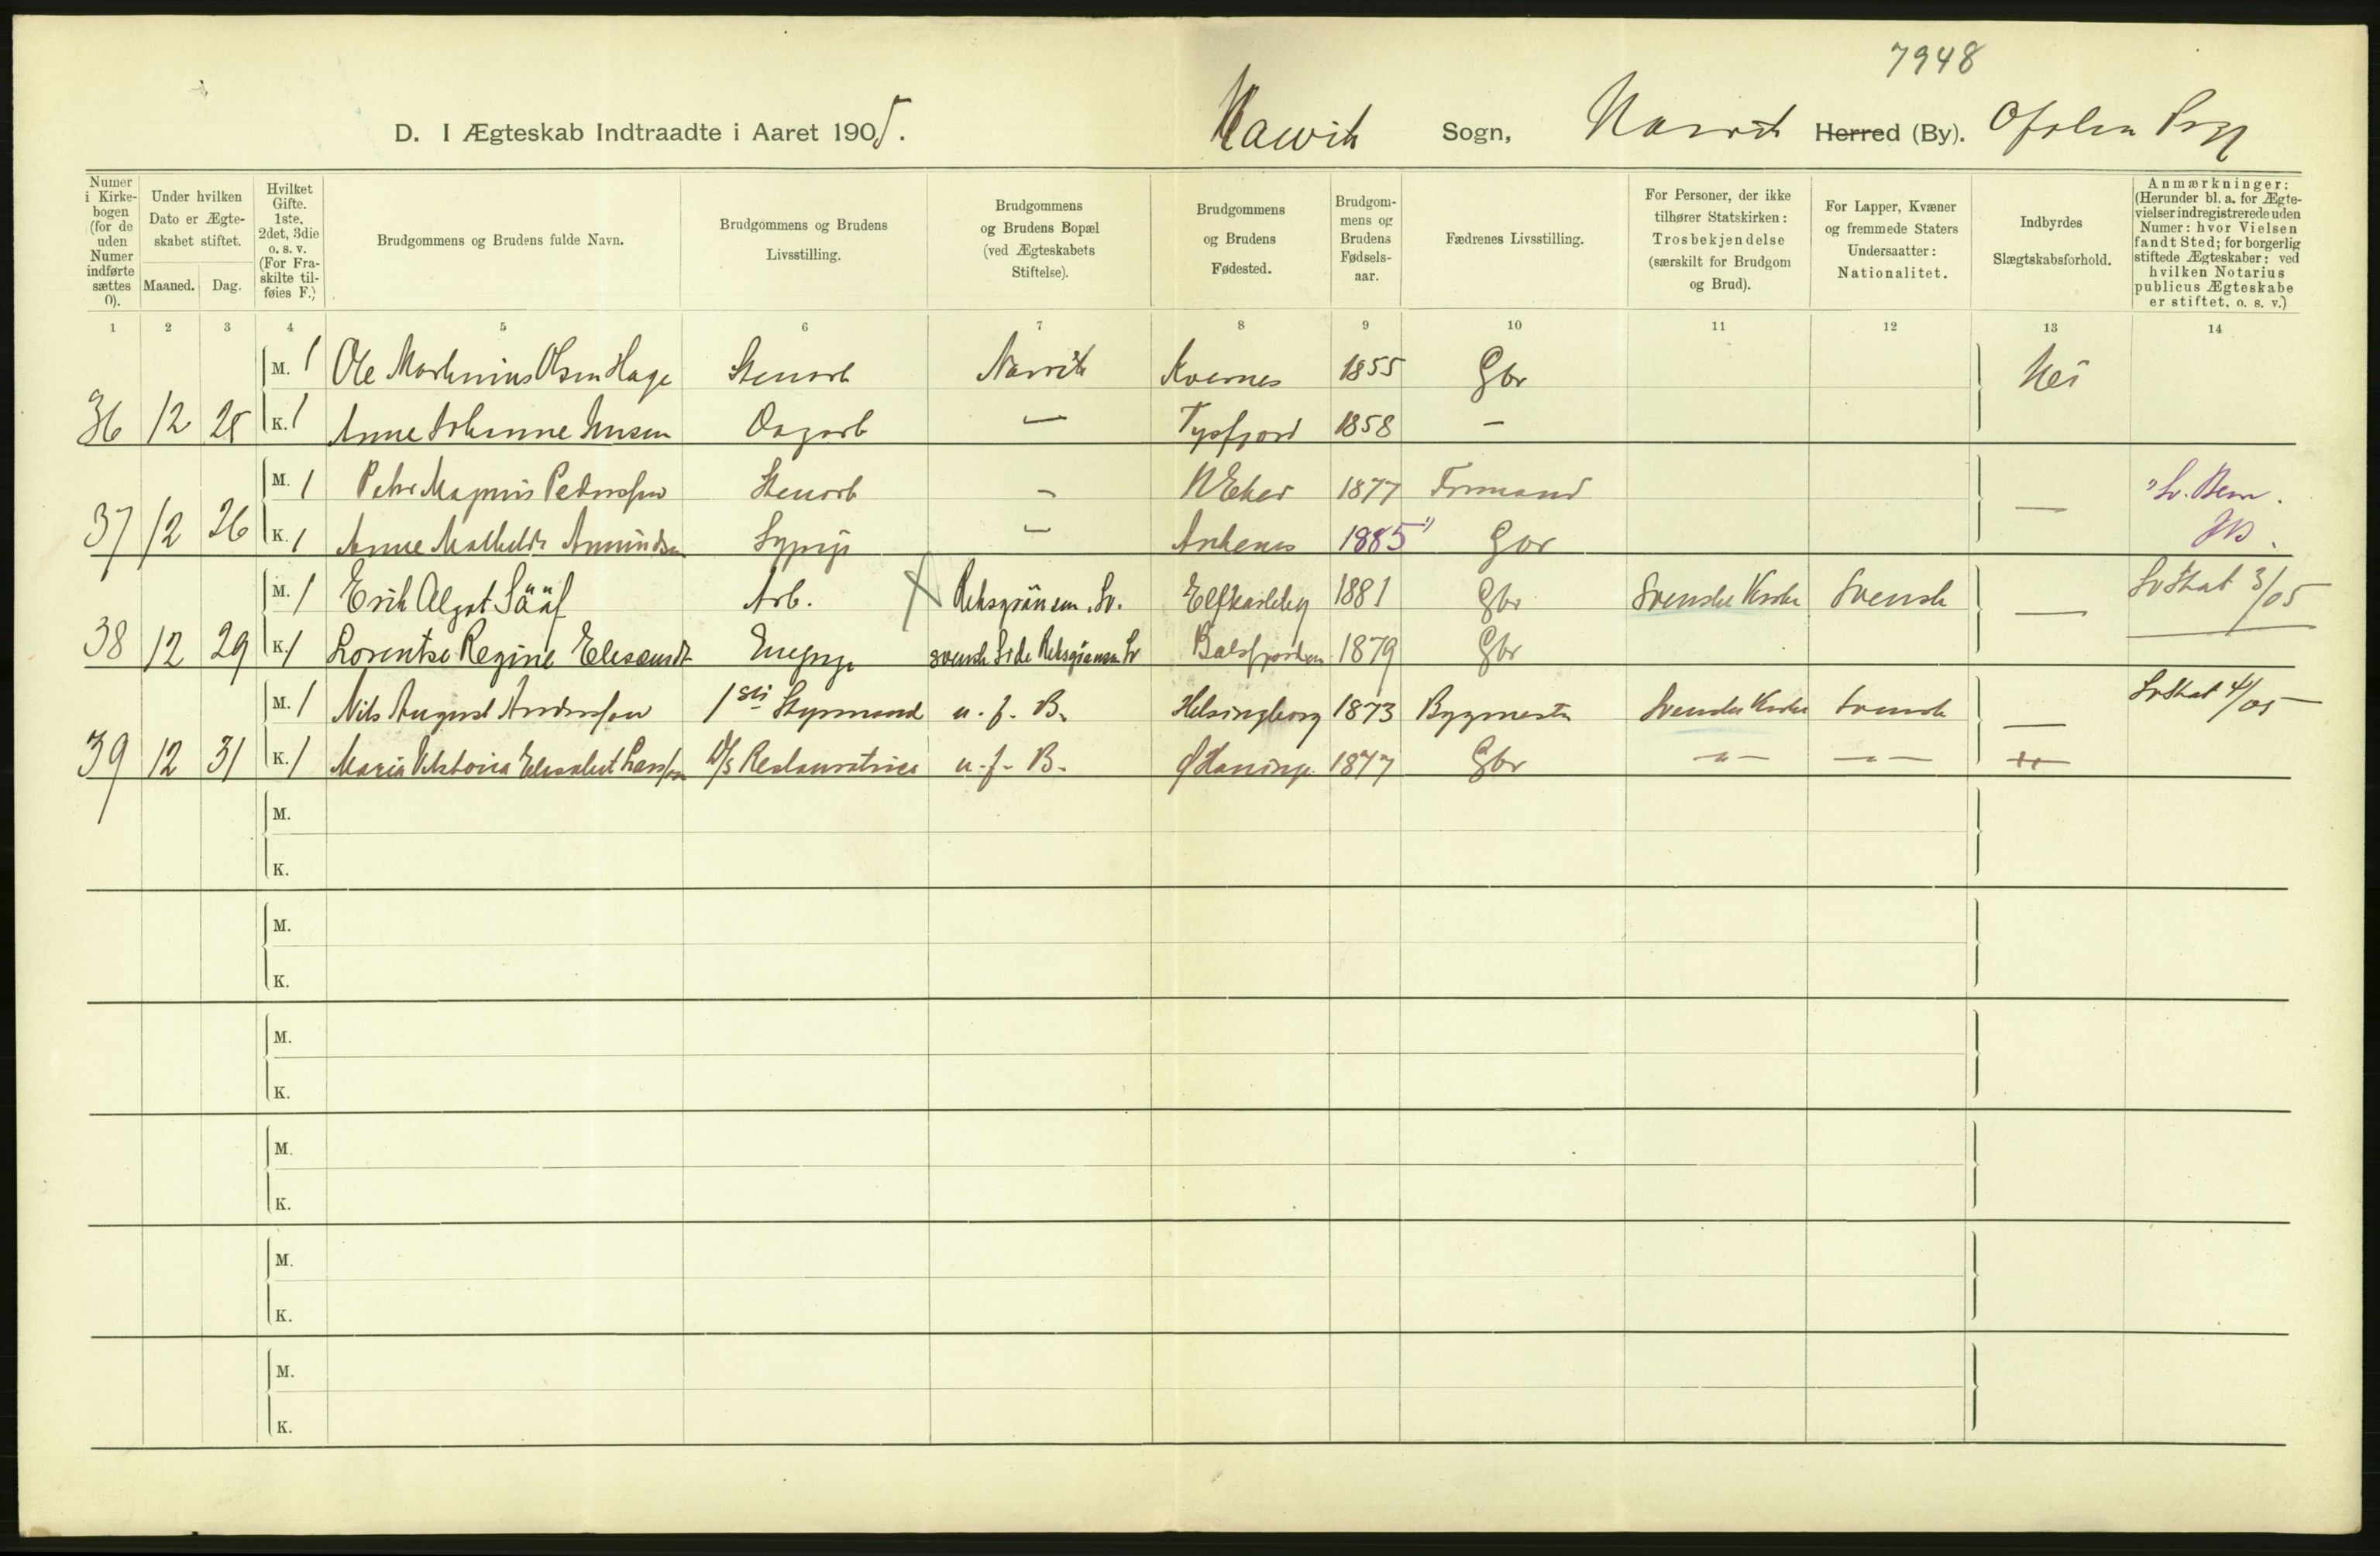 7948
D. I Ægteskab Indtraadte i Aaret 1905. Narvik Sogn, Narvik Herred (By). Ofoten
Numer i Kirkebogen (for de uden Numer indførte sættes 0).
Under hvilken Dato er Ægteskabet stiftet.
Maaned. Dag.
Hvilket Gifte. 1ste, 2det, 3die o. s. v. (For Fraskilte tilføies F.)
Brudgommens og Brudens fulde Navn.
Brudgommens og Brudens Livsstilling.
Brudgommens og Brudens Bopæl (ved Ægteskabets Stiftelse).
Brudgommens og Brudens Fødested.
Brudgommens og Brudens Fødselsaar.
Fædrenes Livsstilling.
For Personer, der ikke tilhører Statskirken: Trosbekjendelse (særskilt for Brudgom og Brud).
For Lapper, Kvæner og fremmede Staters Undersaatter: Nationalitet.
Indbyrdes Slægtskabsforhold.
Anmærkninger: (Herunder bl. a. for Ægtevielser indregistrerede uden Numer: hvor Vielsen fandt Sted; for borgerlig stiftede Ægteskaber: ved hvilken Notarius publicus Ægteskabet er stiftet, o. s. v.)
1 2 3 4 5 6 7 8 9 10 11 12 13 14
M. 1 Ole Martinius Olsen Hage Stenarb Narvik Kvernes 1855 Gbr Nei
36 12 25 K. 1 Anne Johanne Jensen Dagarb — Tysfjord 1858 —
M. 1 Peter Magnus Pederssen Stenarb — N Eker 1877 Formand
37 12 26 K. 1 Anne Mathilde Amundsen Sypige — Ankenes 1885 Gbr —
M. 1 Erik Algot Sääf Arb. Riksgränsen. Sv. Elfkarleby 1881 Gbr Svenske Kirke Svensk — 3/05
38 12 29 K. 1 Lorentse Regine svensk Side Riksgränsen Sv Balsfjorden 1879 Gbr
M. 1 Nils August Andersson 1ste Styrmand u. f. B. Helsingborg 1873 Bygmester Svenske Kirke Svensk — 4/05
39 12 31 K. 1 Maria Viktoria Elisabet Larsson D/S Restauratrice u. f. B. 1877 Gbr —"— —"—
M.
K.
M.
K.
M.
K.
M.
K.
M.
K.
M.
K.